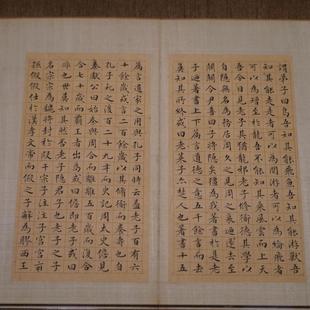 謂弟子曰鳥吾知其能飛魚吾知其能游獸吾
知其能走走者可以為罔游者可以為綸飛者
可以為矰至於龍吾不能知其乘風雲而上天
吾今日見老子其猶龍邪老子脩道德其學以
自隱無名為務居周久之見周之衰迺遂去至
關關令尹喜曰子將隱矣彊為我著書於是老
子迺著書上下篇言道德之意五千餘言而去
莫知其所終或曰老萊子亦楚人也著書十五
篇言道家之用與孔子同時云蓋老子百有六
十餘歲或言二百餘歲以其脩道而養壽也自
孔子死之後百二十九年而史記周太史儋見
秦獻公曰始秦與周合而離離五百歲而復合
合七十歲而霸王者出焉或曰儋即老子或曰
非也世莫知其然否老子隱君子也老子之子
名宗宗為魏將封於段干宗子注注子宮宮玄
孫假假仕於漢孝文帝而假之子解為膠西王